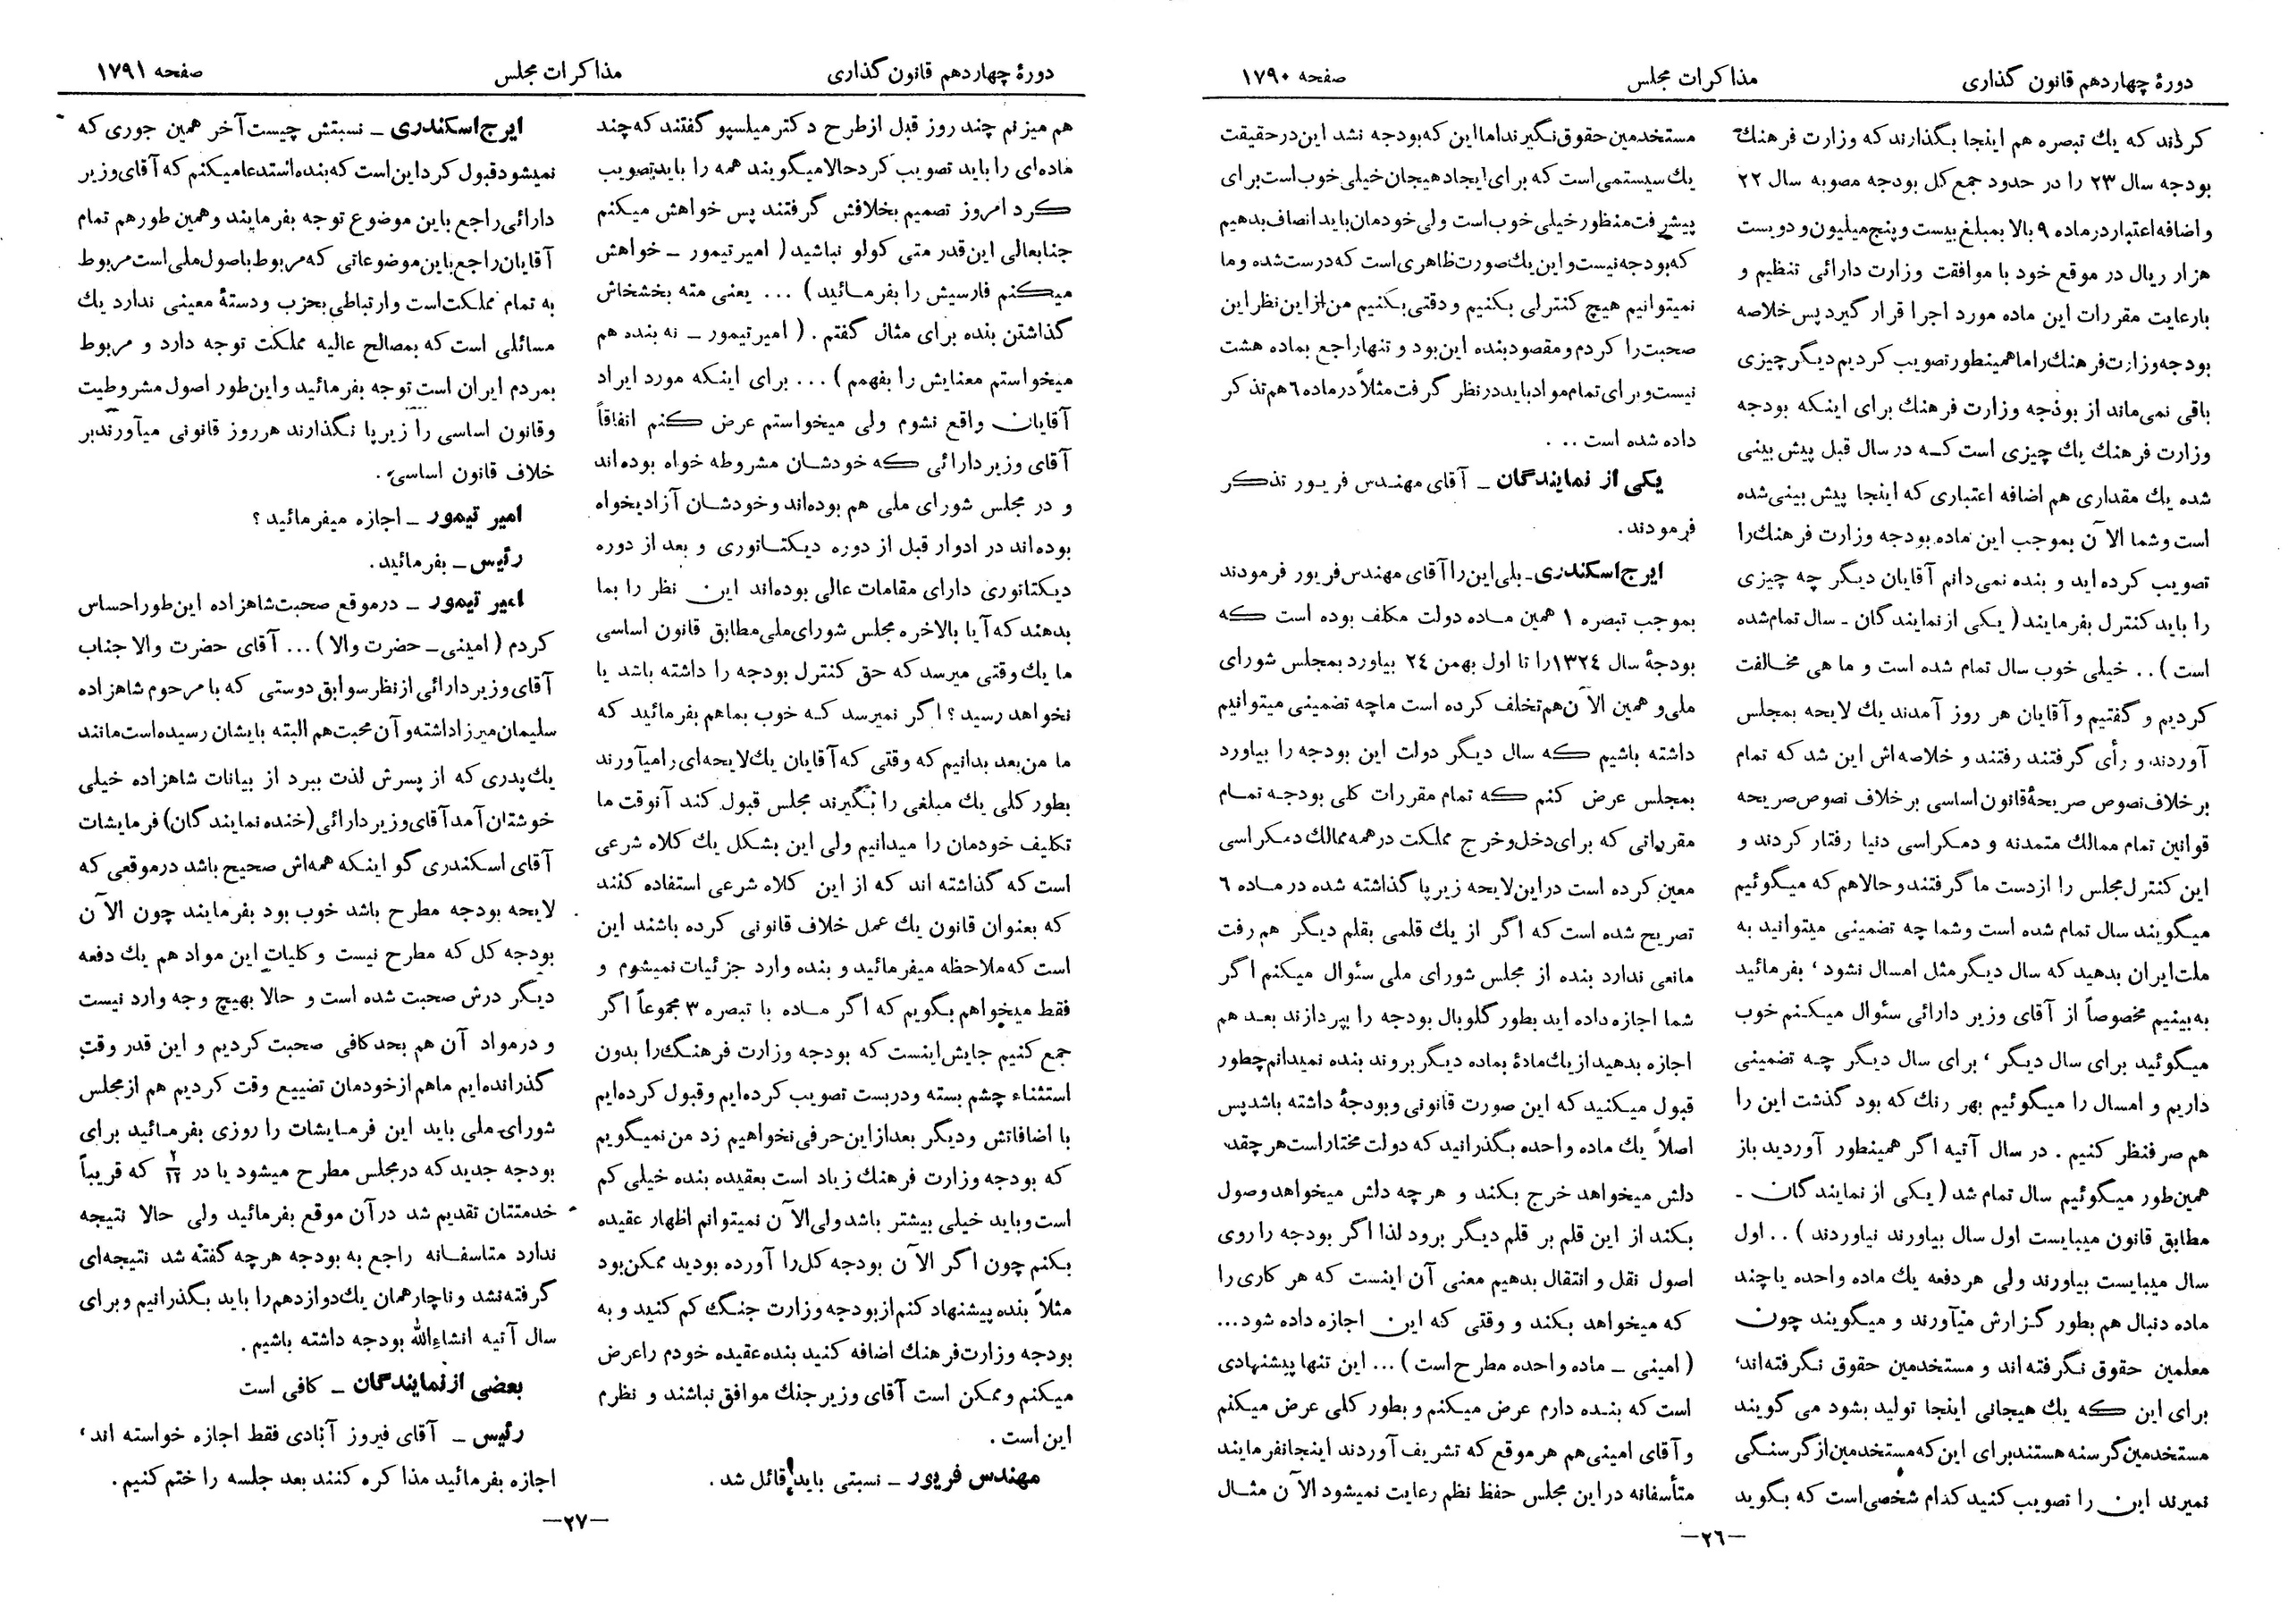 دورهٔ چهاردهم قانون گذاری
مذاکرات مجلس
صفحه ۱۷۹۰
کردند که یك تبصره هم اینجا بگذارند که وزارت فرهنك
بودجه سال ۲۳ را در حدود جمع کل بودجه مصوبه سال ۲۲
و اضافه اعتبار در ماده ۹ بالا بمبلغ بیست و پنج میلیون و دویست
هزار ریال در موقع خود با موافقت وزارت دارائی تنظیم و
بارعایت مقررات این ماده مورد اجرا قرار گیرد پس خلاصه
بودجه وزارت فرهنك را ما همینطور تصویب کردیم دیگر چیزی
باقی نمی‌ماند از بودجه وزارت فرهنك برای اینکه بودجه
وزارت فرهنك یك چیزی است که در سال قبل پیش بینی
شده یك مقداری هم اضافه اعتباری که اینجا پیش بینی شده
است و شما الآن بموجب این ماده بودجه وزارت فرهنك را
تصویب کرده اید و بنده نمی دانم آقایان دیگر چه چیزی
را باید کنترل بفرمایند ( یکی از نمایندگان - سال تمام شده
است ) . . خیلی خوب سال تمام شده است و ما هی مخالفت
کردیم و گفتیم و آقایان هر روز آمدند یك لایحه بمجلس
آوردند و رأی گرفتند رفتند و خلاصه‌اش این شد که تمام
بر خلاف نصوص صریحهٔ قانون اساسی بر خلاف نصوص صریحه
قوانین تمام ممالك متمدنه و دمکراسی دنیا رفتار کردند و
این کنترل مجلس را از دست ما گرفتند و حالا هم که میگوئیم
میگویند سال تمام شده است و شما چه تضمینی میتوانید به
ملت ایران بدهید که سال دیگر مثل امسال نشود ، بفرمائید
به بینیم مخصوصاً از آقای وزیر دارائی سئوال میکنم خوب
میگوئید برای سال دیگر ، برای سال دیگر چه تضمینی
داریم و امسال را میگوئیم بهر رنك که بود گذشت این را
هم صرفنظر کنیم . در سال آتیه اگر همینطور آوردید باز
همین طور میگوئیم سال تمام شد ( یکی از نمایندگان -
مطابق قانون میبایست اول سال بیاورند نیاوردند ) . . اول
سال میبایست بیاورند ولی هر دفعه یك ماده واحده یا چند
ماده دنبال هم بطور گزارش میآورند و میگویند چون
معلمین حقوق نگرفته اند و مستخدمین حقوق نگرفته‌اند،
برای این که یك هیجانی اینجا تولید بشود می گویند
مستخدمین گرسنه هستند برای این که مستخدمین از گرسنگی
نمیرند این را تصویب کنید کدام شخصی است که بگوید
مستخدمین حقوق نگیرند اما این که بودجه نشد این در حقیقت
یك سیستمی است که برای ایجاد هیجان خیلی خوب است برای
پیشرفت منظور خیلی خوب است ولی خودمان باید انصاف بدهیم
که بودجه نیست و این یك صورت ظاهری است که درست شده و ما
نمیتوانیم هیچ کنترلی بکنیم و دقتی بکنیم من از این نظر این
صحبت را کردم و مقصود بنده این بود و تنها راجع بماده هشت
نیست و برای تمام مواد باید در نظر گرفت مثلاً در ماده ۶ هم تذکر
داده شده است . . .
یکی از نمایندگان - آقای مهندس فریور تذکر
فرمودند.
ایرج اسکندری - بلی این را آقای مهندس فریور فرمودند
بموجب تبصره ۱ همین ماده دولت مکلف بوده است که
بودجهٔ سال ۱۳۲۴ را تا اول بهمن ۲۴ بیاورد بمجلس شورای
ملی و همین الآن هم تخلف کرده است ما چه تضمینی میتوانیم
داشته باشیم که سال دیگر دولت این بودجه را بیاورد
بمجلس عرض کنم که تمام مقررات کلی بودجه تمام
مقرراتی که برای دخل و خرج مملکت در همه ممالك دمکراسی
معین کرده است در این لایحه زیر پا گذاشته شده در ماده ۶
تصریح شده است که اگر از یك قلمی بقلم دیگر هم رفت
مانعی ندارد بنده از مجلس شورای ملی سئوال میکنم اگر
شما اجازه داده اید بطور گلوبال بودجه را بپردازند بعد هم
اجازه بدهید از یك مادهٔ بماده دیگر بروند بنده نمیدانم چطور
قبول میکنید که این صورت قانونی و بودجهٔ داشته باشد پس
اصلاً یك ماده واحده بگذرانید که دولت مختار است هر چقدر
دلش میخواهد خرج بکند و هر چه دلش میخواهد وصول
بکند از این قلم بر قلم دیگر برود لذا اگر بودجه را روی
اصول نقل و انتقال بدهیم معنی آن اینست که هر کاری را
که میخواهد بکند و وقتی که این اجازه داده شود...
( امینی - ماده واحده مطرح است ) ... این تنها پیشنهادی
است که بنده دارم عرض میکنم و بطور کلی عرض میکنم
و آقای امینی هم هر موقع که تشریف آوردند اینجا نفرمایند
متأسفانه در این مجلس حفظ نظم رعایت نمیشود الآن مثال
—۲۶—
دورهٔ چهاردهم قانون گذاری
مذاکرات مجلس
صفحه ۱۷۹۱
هم میزنم چند روز قبل از طرح دکتر میلسپو گفتند که چند
ماده‌ای را باید تصویب کرد حالا میگویند همه را باید تصویب
کرد امروز تصمیم بخلافش گرفتند پس خواهش میکنم
جنابعالی این قدر متی کولو نباشید ( امیر تیمور - خواهش
میکنم فارسیش را بفرمائید ) ... یعنی مته بخشخاش
گذاشتن بنده برای مثال گفتم . ( امیر تیمور - نه بنده هم
میخواستم معنایش را بفهمم ) ... برای اینکه مورد ایراد
آقایان واقع نشوم ولی میخواستم عرض کنم اتفاقاً
آقای وزیر دارائی که خودشان مشروطه خواه بوده‌اند
و در مجلس شورای ملی هم بوده‌اند و خودشان آزادیخواه
بوده‌اند در ادوار قبل از دوره دیکتاتوری و بعد از دوره
دیکتاتوری دارای مقامات عالی بوده‌اند این نظر را بما
بدهند که آیا بالاخره مجلس شورای ملی مطابق قانون اساسی
ما یك وقتی میرسد که حق کنترل بودجه را داشته باشد یا
نخواهد رسید ؟ اگر نمیرسد که خوب بما هم بفرمائید که
ما من بعد بدانیم که وقتی که آقایان یك لایحه‌ای را میآورند
بطور کلی یك مبلغی را بگیرند مجلس قبول کند آنوقت ما
تکلیف خودمان را میدانیم ولی این بشکل یك کلاه شرعی
است که گذاشته اند که از این کلاه شرعی استفاده کنند
که بعنوان قانون یك عمل خلاف قانونی کرده باشند این
است که ملاحظه میفرمائید و بنده وارد جزئیات نمیشوم و
فقط میخواهم بگویم که اگر ماده با تبصره ۳ مجموعاً اگر
جمع کنیم جایش اینست که بودجه وزارت فرهنگ را بدون
استثناء چشم بسته و دربست تصویب کرده‌ایم و قبول کرده‌ایم
با اضافاتش و دیگر بعد از این حرفی نخواهیم زد من نمیگویم
که بودجه وزارت فرهنك زیاد است بعقیده بنده خیلی کم
است و باید خیلی بیشتر باشد ولی الآن نمیتوانم اظهار عقیده
بکنم چون اگر الآن بودجه کل را آورده بودید ممکن بود
مثلاً بنده پیشنهاد کنم از بودجه وزارت جنگ کم کنید و به
بودجه وزارت فرهنك اضافه کنید بنده عقیده خودم را عرض
میکنم و ممکن است آقای وزیر جنك موافق نباشند و نظرم
این است .
مهندس فریور - نسبتی باید قائل شد .
ایرج اسکندری - نسبتش چیست آخر همین جوری که
نمیشود قبول کرد این است که بنده استدعا میکنم که آقای وزیر
دارائی راجع باین موضوع توجه بفرمایند و همین طور هم تمام
آقایان راجع باین موضوعاتی که مربوط باصول ملی است مربوط
به تمام مملکت است و ارتباطی بحزب و دستهٔ معینی ندارد یك
مسائلی است که بمصالح عالیه مملکت توجه دارد و مربوط
بمردم ایران است توجه بفرمائید و این طور اصول مشروطیت
و قانون اساسی را زیر پا نگذارند هر روز قانونی میآورند بر
خلاف قانون اساسی .
امیر تیمور - اجازه میفرمائید ؟
رئیس - بفرمائید .
امیر تیمور - در موقع صحبت شاهزاده این طور احساس
کردم ( امینی - حضرت والا ) ... آقای حضرت والا جناب
آقای وزیر دارائی از نظر سوابق دوستی که با مرحوم شاهزاده
سلیمان میرزا داشته و آن محبت هم البته بایشان رسیده است مانند
یك پدری که از پسرش لذت ببرد از بیانات شاهزاده خیلی
خوشتان آمد آقای وزیر دارائی (خنده نمایندگان) فرمایشات
آقای اسکندری گو اینکه همه‌اش صحیح باشد در موقعی که
لایحه بودجه مطرح باشد خوب بود بفرمایند چون الآن
بودجه کل که مطرح نیست و کلیات این مواد هم یك دفعه
دیگر درش صحبت شده است و حالا بهیچ وجه وارد نیست
و در مواد آن هم بحد کافی صحبت کردیم و این قدر وقت
گذرانده‌ایم ما هم از خودمان تضییع وقت کردیم هم از مجلس
شورای ملی باید این فرمایشات را روزی بفرمائید برای
بودجه جدید که در مجلس مطرح میشود یا در ۲/۱۲ که قریباً
خدمتتان تقدیم شد در آن موقع بفرمائید ولی حالا نتیجه
ندارد متاسفانه راجع به بودجه هر چه گفته شد نتیجه‌ای
گرفته نشد و ناچار همان یك دوازدهم را باید بگذرانیم و برای
سال آتیه انشاءالله بودجه داشته باشیم .
بعضی از نمایندگان - کافی است
رئیس - آقای فیروز آبادی فقط اجازه خواسته اند ،
اجازه بفرمائید مذاکره کنند بعد جلسه را ختم کنیم .
—۲۷—